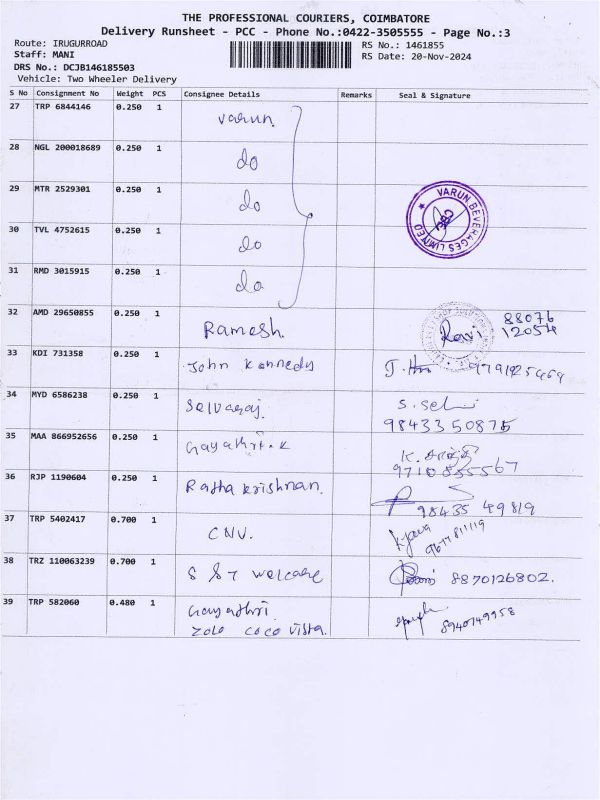 THE PROFESSIONAL COURIERS, COIMBATORE
Delivery Runsheet - PCC - Phone No.:0422-3505555 - Page No.:3
Route: IRUGURROAD
RS No.: 1461855
Staff: MANI
RS Date: 20-Nov-2024
DRS No.: DCJB146185503
Vehicle: Two Wheeler Delivery
S No Consignment No Weight PCS Consignee Details Remarks Seal & Signature
27 TRP 6844146 0.250 1 Varun
28 NGL 200018689 0.250 1 do
29 MTR 2529301 0.250 1 do
VARUN BEVERAGES LIMITED
30 TVL 4752615 0.250 1 do
31 RMD 3015915 0.250 1 do
32 AMD 29650855 0.250 1 Ramesh. Ravi 88076
12054
33 KDI 731358 0.250 1 John Kennedy
34 MYD 6586238 0.250 1 Selvaraj. S. Sel
9843350875
35 MAA 866952656 0.250 1 Gayathri.K K.
9710855567
36 RJP 1190604 0.250 1 Radha Krishnan. 98435 49819
37 TRP 5402417 0.700 1 CNV.
9677811119
38 TRZ 110063239 0.700 1 S S T Welcare 8870126802.
39 TRP 582060 0.480 1 Gayathri
Zolo Coco Vista. 8940749958